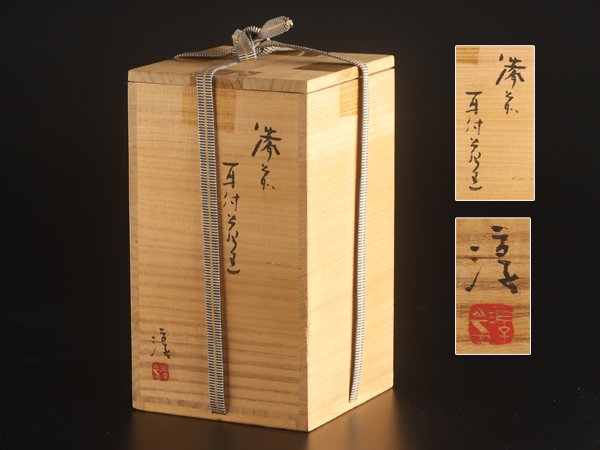 備前
耳付花生
淳
備前
耳付花生
淳